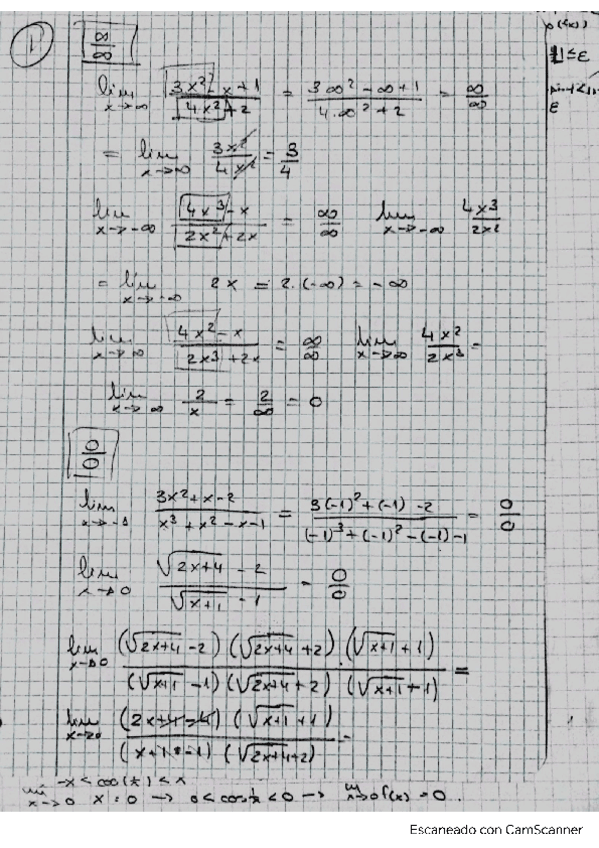 1
∞/∞
o(f(x))
lim x→∞ (3x² - x + 1)/(4x² + 2) = (3∞² - ∞ + 1)/(4·∞² + 2) = ∞/∞
ε
= lim x→∞ 3x²/4x² = 3/4
lim x→-∞ (4x³ - x)/(2x² + 2x) = ∞/∞ lim x→-∞ 4x³/2x²
= lim x→-∞ 2x = 2·(-∞) = -∞
lim x→∞ (4x² - x)/(2x³ + 2x) = ∞/∞ lim x→∞ 4x²/2x³ =
lim x→∞ 2/x = 2/∞ = 0
0/0
lim x→-1 (3x² + x - 2)/(x³ + x² - x - 1) = (3(-1)² + (-1) - 2)/((-1)³ + (-1)² - (-1) - 1) = 0/0
lim x→0 (√(2x+4) - 2)/(√(x+1) - 1) = 0/0
lim x→0 (√(2x+4) - 2)(√(2x+4) + 2)·(√(x+1) + 1)/(√(x+1) - 1)(√(2x+4) + 2)(√(x+1) + 1) =
lim x→0 (2x+4-4)(√(x+1) + 1)/(x+1-1)(√(2x+4) + 2) =
-x < cos(1/x) < x
lim x→0 x = 0 → 0 < cos 1/x < 0 → lim x→0 f(x) = 0.
Escaneado con CamScanner